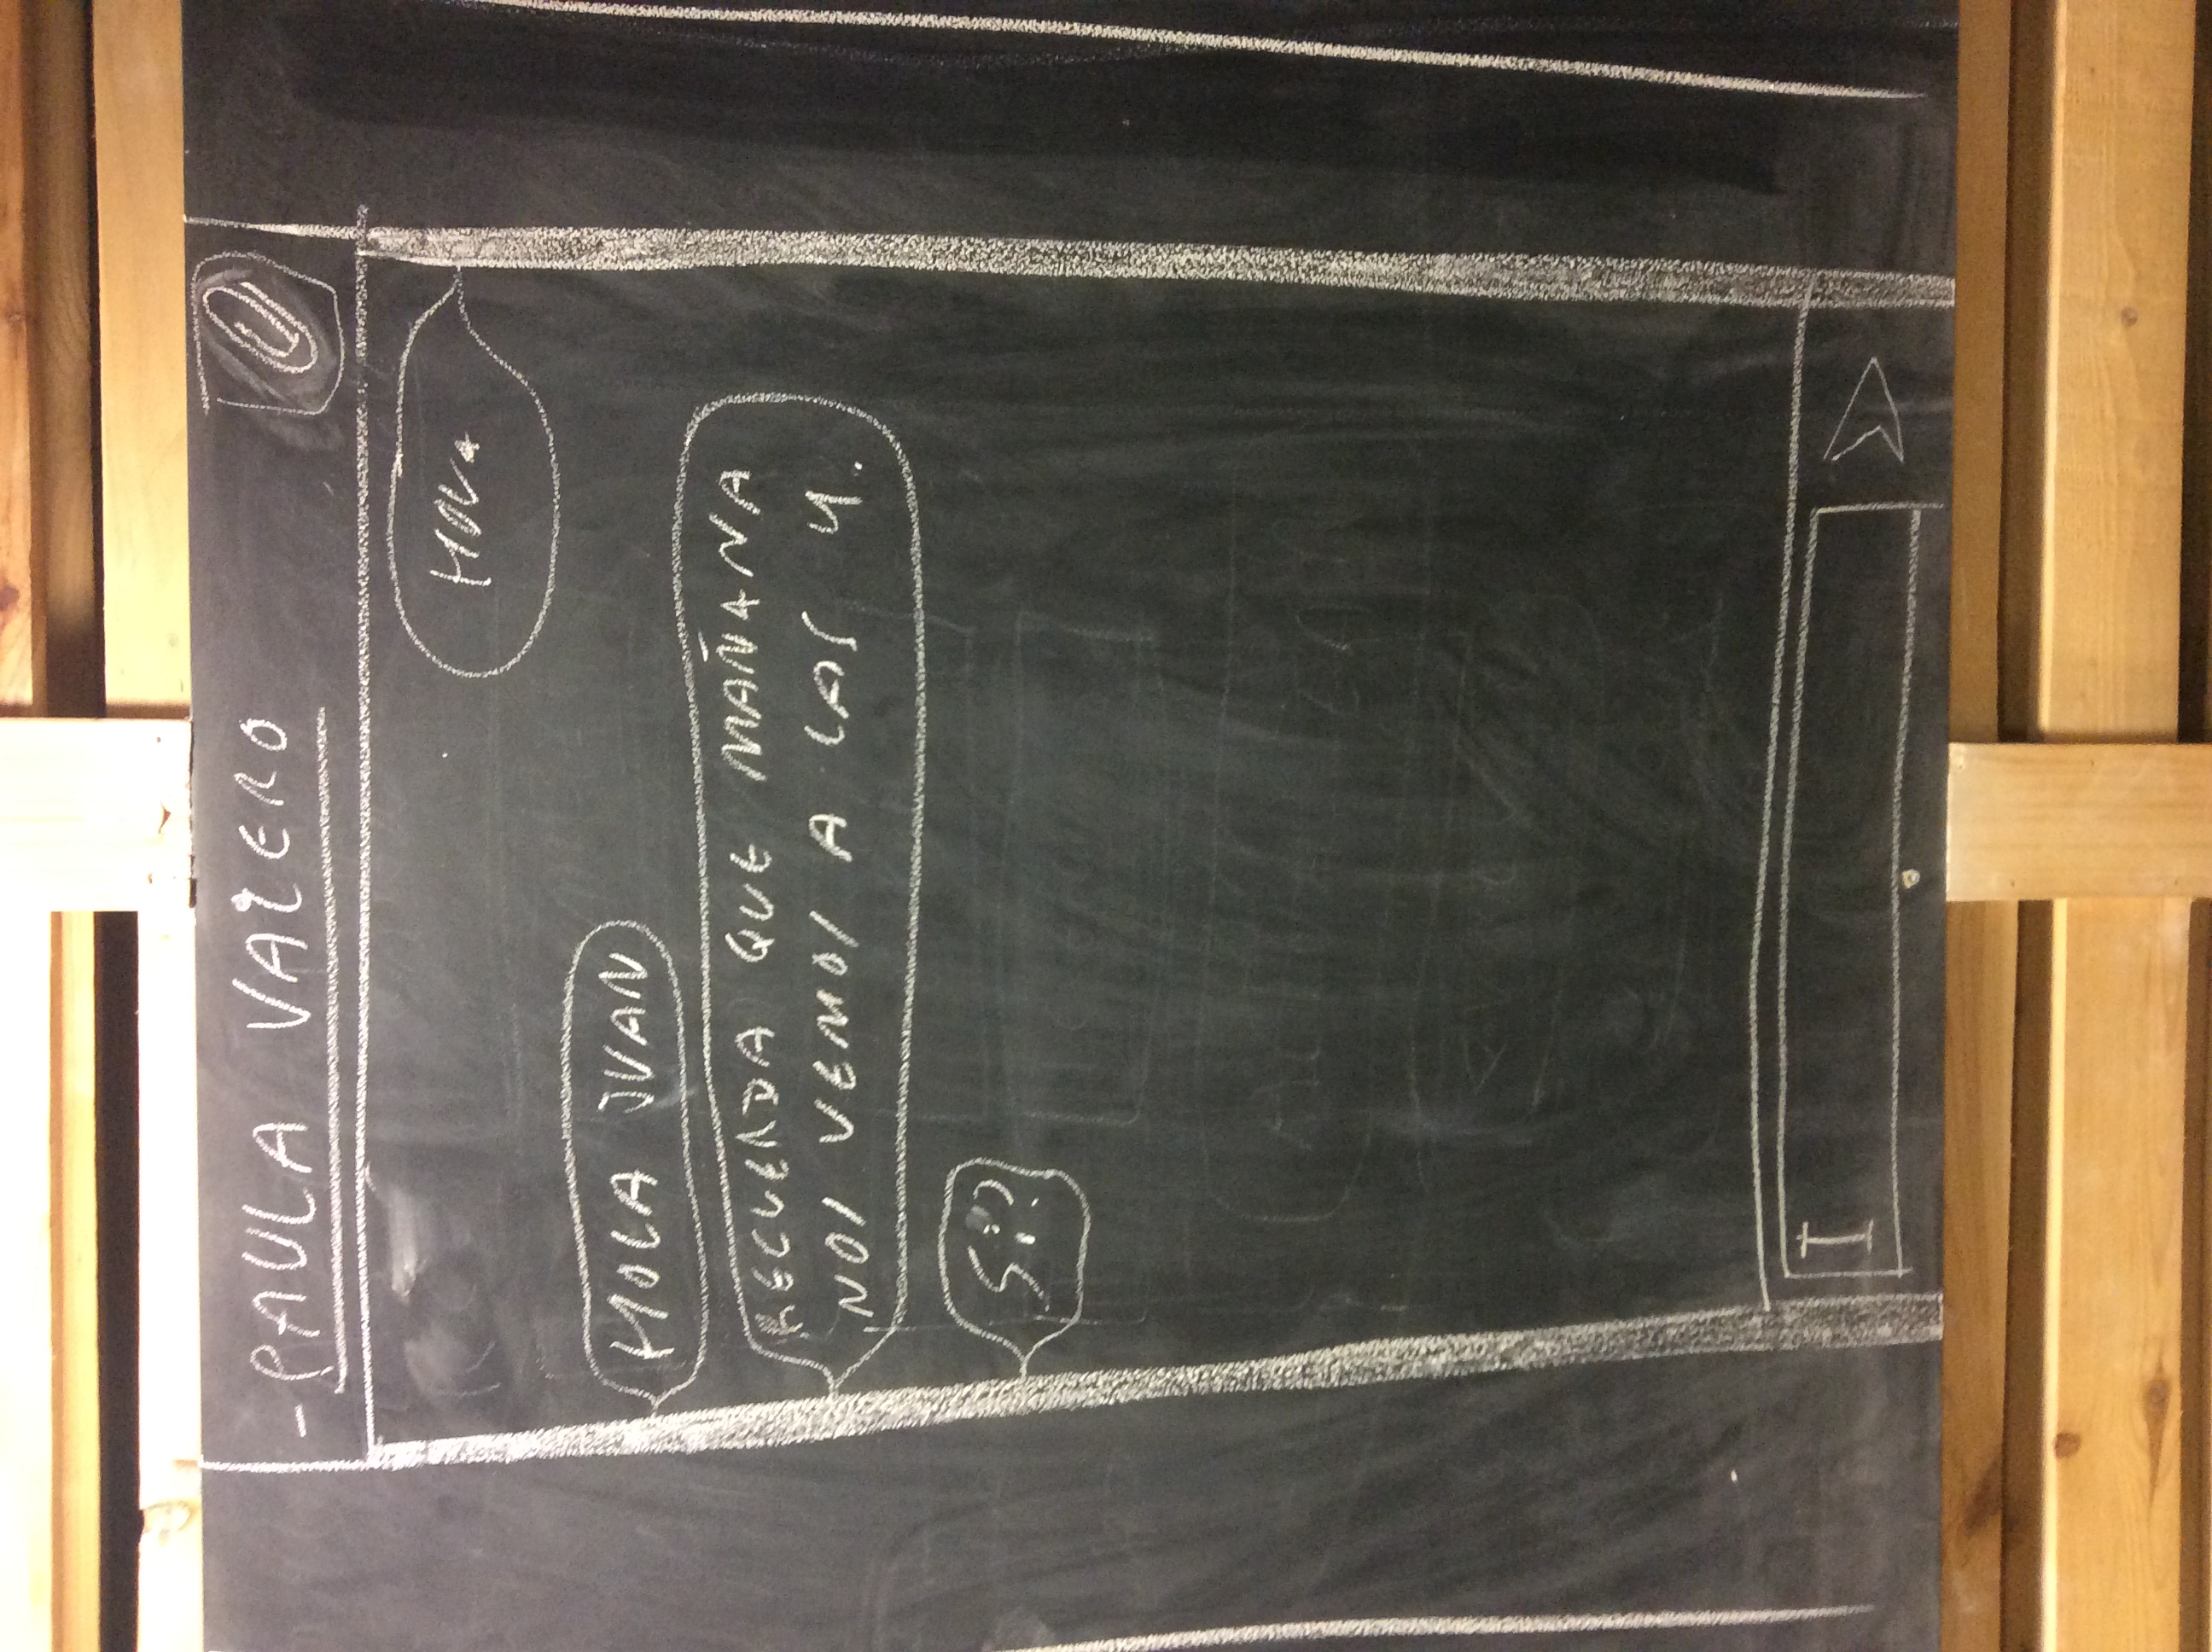 -PAULA VALERO
HOLA
HOLA JUAN
RECUERDA QUE MAÑANA
NOS VEMOS A LAS 4.
Sí?